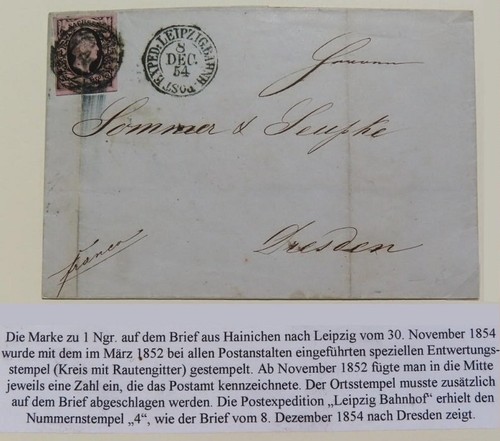 POST EXPED: LEIPZIG. BAHNH.
8
DEC.
54
Herren
Sommer & Seupke
franco
Dresden
Die Marke zu 1 Ngr. auf dem Brief aus Hainichen nach Leipzig vom 30. November 1854
wurde mit dem im März 1852 bei allen Postanstalten eingeführten speziellen Entwertungs-
stempel (Kreis mit Rautengitter) gestempelt. Ab November 1852 fügte man in die Mitte
jeweils eine Zahl ein, die das Postamt kennzeichnete. Der Ortsstempel musste zusätzlich
auf dem Brief abgeschlagen werden. Die Postexpedition „Leipzig Bahnhof“ erhielt den
Nummernstempel „4“, wie der Brief vom 8. Dezember 1854 nach Dresden zeigt.